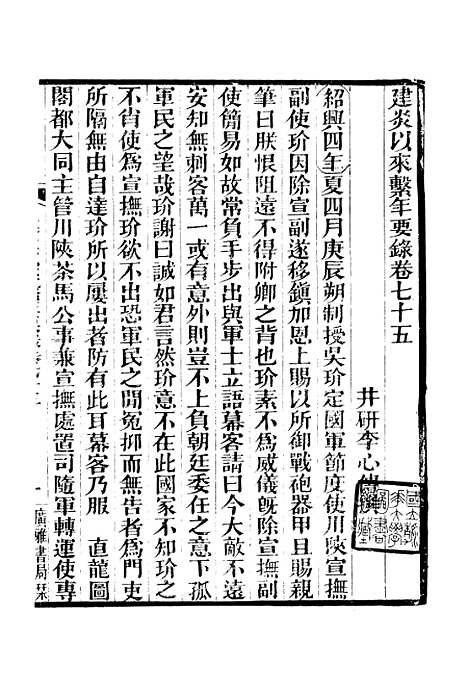 建炎以來繫年要錄卷七十五
井研李心傳
紹興四年夏四月庚辰朔制授吳玠定國軍節度使川陝宣撫
副使玠因除宣副遂移鎮加恩上賜以所御戰砲器甲且賜親
筆曰朕恨阻遠不得附卿之背也玠素不爲威儀旣除宣撫副
使簡易如故常負手步出與軍士立語幕客請曰今大敵不遠
安知無刺客萬一或有意外則豈不上負朝廷委任之意下孤
軍民之望哉玠謝曰誠如君言然玠意不在此國家不知玠之
不肖使爲宣撫玠欲不出恐軍民之閒冤抑而無告者爲門吏
所隔無由自達玠所以屢出者防有此耳幕客乃服 直龍圖
閣都大同主管川陝茶馬公事兼宣撫處置司隨軍轉運使專
廣雅書局栞